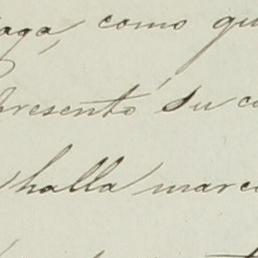 como qu
presentó su c
halla marc